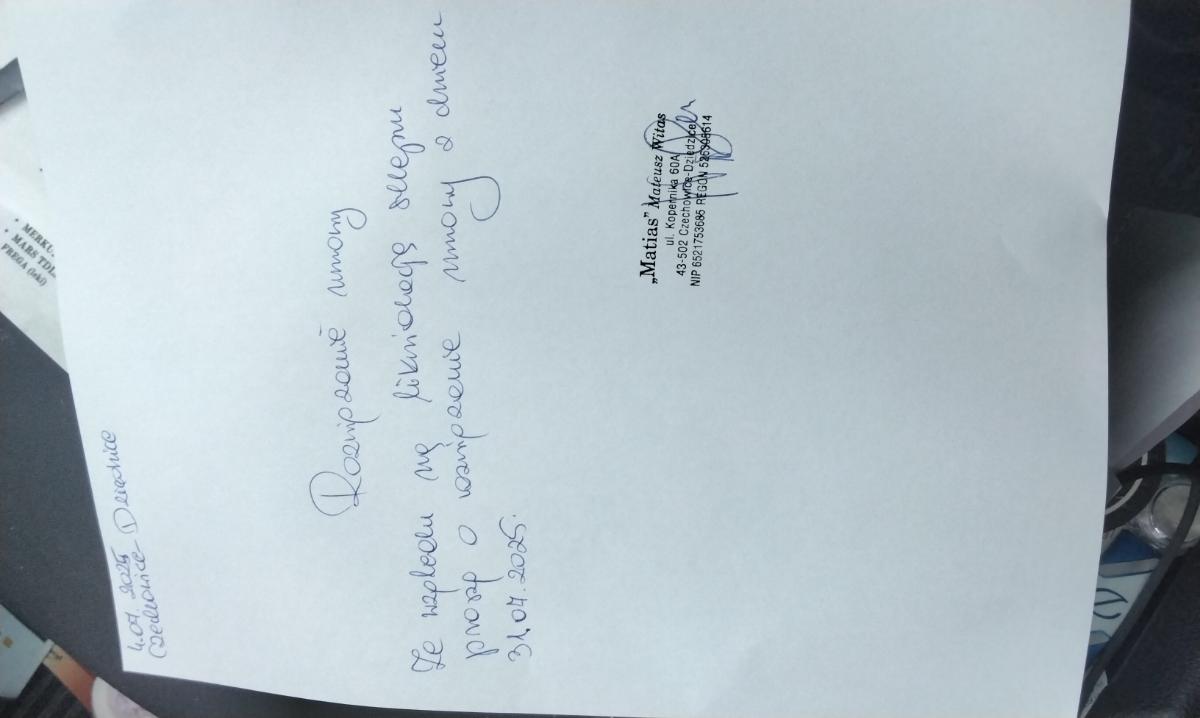 4.07.2025
Czechowice-Dziedzice
Rozwiązanie umowy
Ze względu na likwidację sklepu
proszę o rozwiązanie umowy z dniem
31.07.2025.
„Matias” Mateusz Witas
ul. Kopernika 60A
43-502 Czechowice-Dziedzice
NIP 6521753685 REGON
• MERKU
• MARS TDL
FREGA (leki)